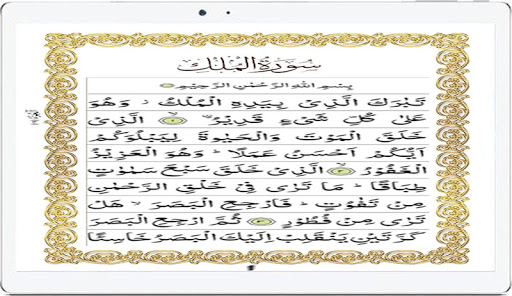 سُوْرَةُ الْمُلْكِ
بِسْمِ اللّٰهِ الرَّحْمٰنِ الرَّحِيْمِ
تَبٰرَكَ الَّذِىْ بِيَدِهِ الْمُلْكُ ؗ وَهُوَ
عَلٰى كُلِّ شَىْءٍ قَدِيْرٌ ۙ ۝۱ الَّذِىْ
خَلَقَ الْمَوْتَ وَالْحَيٰوةَ لِيَبْلُوَكُمْ
اَيُّكُمْ اَحْسَنُ عَمَلًا ؕ وَهُوَ الْعَزِيْزُ
الْغَفُوْرُ ۙ ۝۲ الَّذِىْ خَلَقَ سَبْعَ سَمٰوٰتٍ
طِبَاقًا ؕ مَا تَرٰى فِىْ خَلْقِ الرَّحْمٰنِ
مِنْ تَفٰوُتٍ ؕ فَارْجِعِ الْبَصَرَ ۙ هَلْ
تَرٰى مِنْ فُطُوْرٍ ۝۳ ثُمَّ ارْجِعِ الْبَصَرَ
كَرَّتَيْنِ يَنْقَلِبْ اِلَيْكَ الْبَصَرُ خَاسِئًا